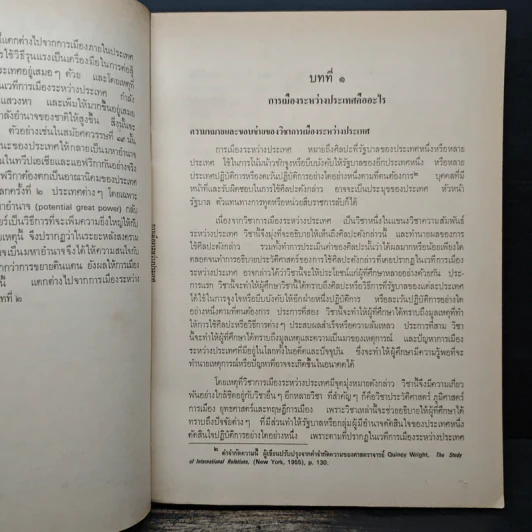 ที่แตกต่างไปจากการเมืองภายในประเทศ
ใช้วิธีรุนแรงเป็นเครื่องมือในการต่อสู้
ประเทศอยู่เสมอๆ ด้วย และโดยเหตุที่
แสวงหา และเพิ่มให้มากขึ้นอยู่เสมอ
กำลังอำนาจของชาติให้สูงขึ้น สิ่งนั้นจะ
ตัวอย่างเช่นในสมัยศตวรรษที่ ๑๙ นั้น
นในทวีปเอเชียและแอฟริกาอย่างจริง
โลกครั้งที่ ๒ ประเทศต่างๆ โดยเฉพาะ
อำนาจ (potential great power) กลับ
ยร์เป็นวิธีการที่จะเพิ่มความยิ่งใหญ่ให้กับ
เหตุนี้ จึงปรากฏว่าในระยะหลังสงคราม
กว่าการขยายดินแดน ยังผลให้การเมือง
นี้ แตกต่างไปจากการเมืองระหว่าง
บทที่ ๒
บทที่ ๑
การเมืองระหว่างประเทศคืออะไร
ความหมายและขอบข่ายของวิชาการเมืองระหว่างประเทศ
การเมืองระหว่างประเทศ หมายถึงศิลปะที่รัฐบาลของประเทศหนึ่งหรือหลาย
ประเทศ ใช้ในการโน้มน้าวชักจูงหรือบีบบังคับให้รัฐบาลของอีกประเทศหนึ่ง หรือหลาย
ประเทศปฏิบัติการหรืองดเว้นปฏิบัติการอย่างใดอย่างหนึ่งตามที่ตนต้องการ๒ บุคคลที่มี
หน้าที่และรับผิดชอบในการใช้ศิลปะดังกล่าว อาจจะเป็นประมุขของประเทศ หัวหน้า
รัฐบาล ตัวแทนทางการทูตหรือหน่วยสืบราชการลับก็ได้
เนื่องจากวิชาการเมืองระหว่างประเทศ เป็นวิชาหนึ่งในแขนงวิชาความสัมพันธ์
ระหว่างประเทศ วิชานี้จึงมุ่งที่จะอธิบายให้เห็นถึงศิลปะดังกล่าวนี้ และทำนายผลของการ
ใช้ศิลปะดังกล่าว รวมทั้งทำการประเมินค่าของศิลปะนั้นว่าได้ผลมากหรือน้อยเพียงใด
ตลอดจนทำการอธิบายประวัติศาสตร์ของการใช้ศิลปะดังกล่าวที่เคยปรากฏในวิชาการเมือง
ระหว่างประเทศ อาจกล่าวได้ว่าวิชานี้จะให้ประโยชน์แก่ผู้ที่ศึกษาหลายอย่างด้วยกัน ประ-
การแรก วิชานี้จะทำให้ผู้ที่ศึกษาวิชานี้ได้ทราบถึงศิลปะหรือวิธีการที่รัฐบาลของแต่ละประเทศ
ได้ใช้ในการจูงใจหรือบีบบังคับให้อีกฝ่ายหนึ่งปฏิบัติการ หรือละเว้นปฏิบัติการอย่างใด
อย่างหนึ่งตามที่ตนต้องการ ประการที่สอง วิชานี้จะทำให้ผู้ที่ศึกษาได้ทราบถึงมูลเหตุที่ทำ
ให้การใช้ศิลปะหรือวิธีการต่างๆ ประสบผลสำเร็จหรือความล้มเหลว ประการที่สาม วิชา
นี้จะทำให้ผู้ที่ศึกษาได้ทราบถึงมูลเหตุและความเป็นมาของเหตุการณ์ และปัญหาการเมือง
ระหว่างประเทศที่มีอยู่ในโลกทั้งในอดีตและปัจจุบัน ซึ่งจะทำให้ผู้ศึกษามีความรู้พอที่จะ
ทำนายเหตุการณ์หรือปัญหาที่อาจจะเกิดขึ้นในอนาคตได้
โดยเหตุที่วิชาการเมืองระหว่างประเทศมีจุดมุ่งหมายดังกล่าว วิชานี้จึงมีความเกี่ยว
พันอย่างใกล้ชิดอยู่กับวิชาอื่นๆ อีกหลายวิชา ที่สำคัญๆ ก็คือวิชาประวัติศาสตร์ ภูมิศาสตร์
การเมือง ยุทธศาสตร์และทฤษฎีการเมือง เพราะวิชาเหล่านี้จะช่วยอธิบายให้ผู้ที่ศึกษาได้
ทราบถึงปัจจัยต่างๆ ที่มีส่วนทำให้รัฐบาลหรือกลุ่มผู้มีอำนาจตัดสินใจของประเทศหนึ่ง
ตัดสินใจปฏิบัติการอย่างใดอย่างหนึ่ง เพราะตามที่ปรากฏในเวทีการเมืองระหว่างประเทศ
๒ คำจำกัดความนี้ ผู้เขียนปรับปรุงจากคำจำกัดความของศาสตราจารย์ Quincy Wright, The Study
of International Relations, (New York, 1955), p. 130.